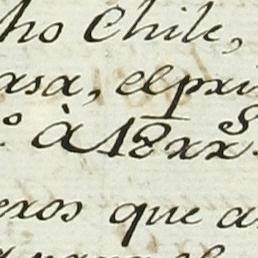 ho Chile,
asa, el pri
º â 18xxS
exos que a